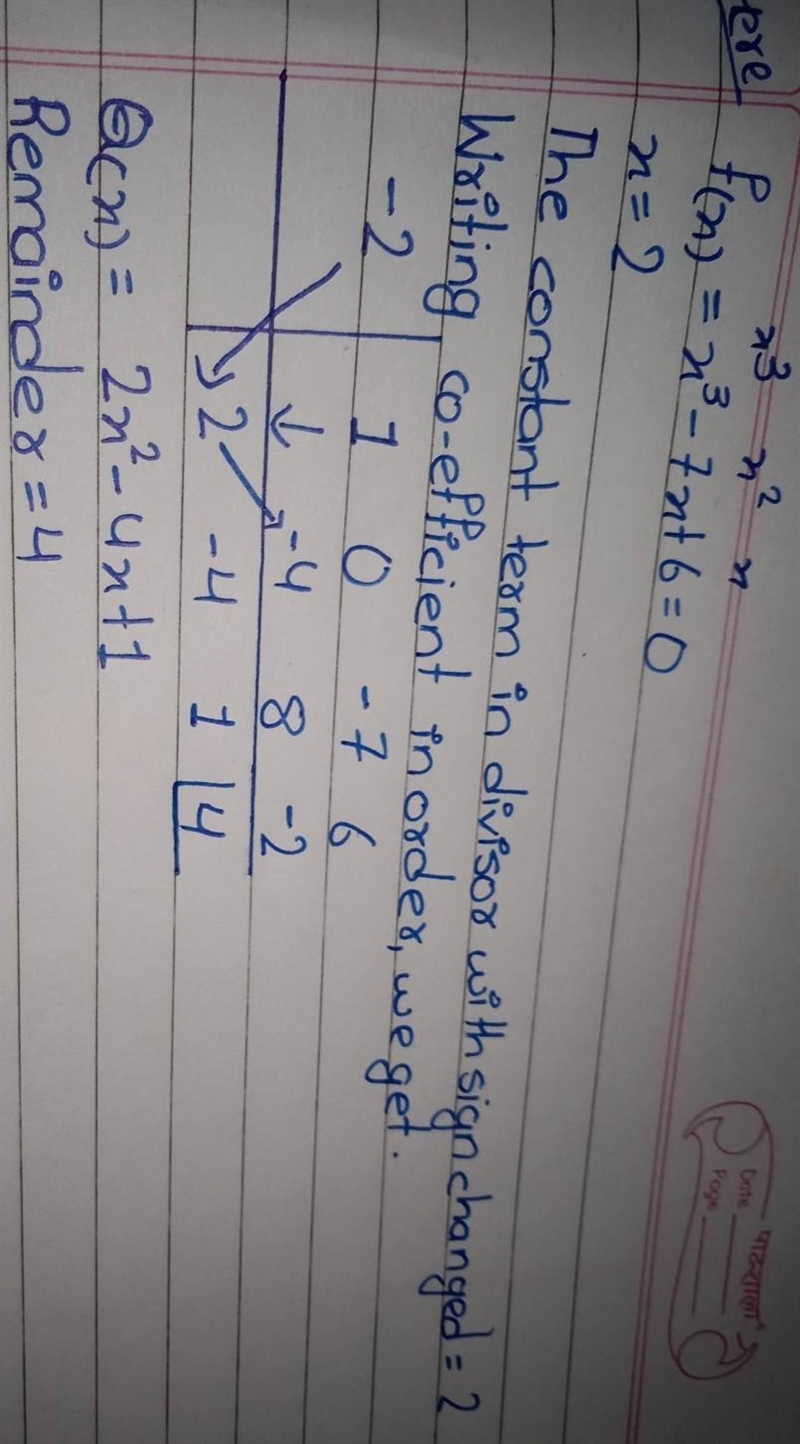 पाठशाला
Date
Page
ere
x³ x² x
f(x) = x³ - 7x + 6 = 0
x = 2
The constant term in divisor with sign changed = 2
Writing co-efficient in order, we get.
-2 1 0 -7 6
↓ -4 8 -2
2 -4 1 4
Q(x) = 2x² - 4x + 1
Remainder = 4